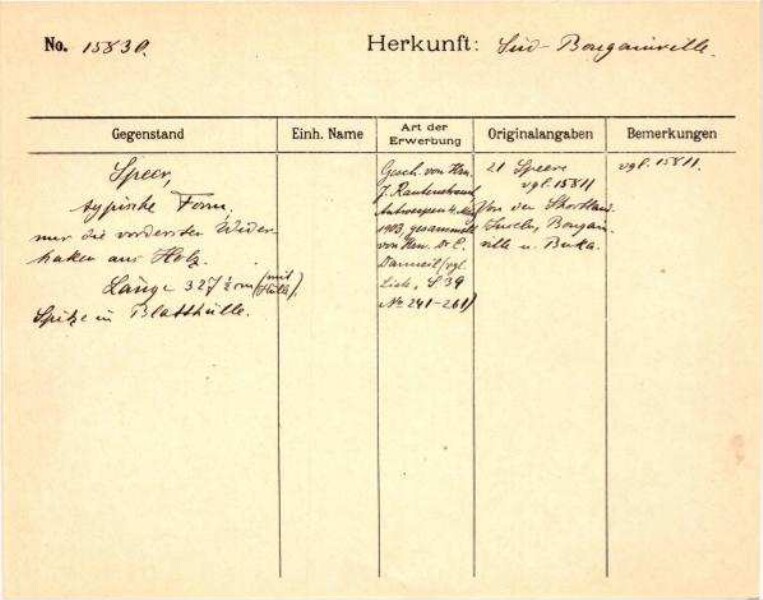 No. 15830.
Herkunft: Süd-Bougainville.
Gegenstand
Einh. Name
Art der Erwerbung
Originalangaben
Bemerkungen
Speer,
typische Form,
nur die vordersten Wider-
haken aus Holz.
Länge 327 ½ cm (mit Hülle).
Spitze in Blatthülle.
Gesch. von Hrn.
J. Rautenstrauch
Antwerpen 4. Mai
1903, gesammelt
von Hrn. Dr. C.
Danneil (vgl.
Liste, S. 39
No 241-261)
21 Speere
vgl. 15811
Von den Shortland-
Inseln, Bougain-
ville u. Buka.
vgl. 15811.